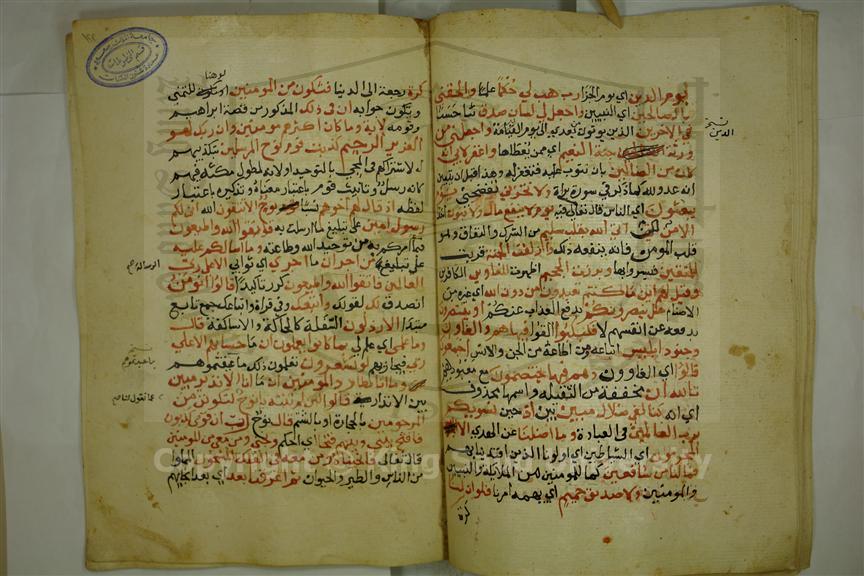 ليوم الدين اي يوم الجزا رب هب لي حكما علما والحقني
بالصالحين اي النبيين واجعل لي لسان صدق ثنا حسنا
في الاخرين الذين ياتون بعدي الى يوم القيامة واجعلني من
ورثة جنة النعيم اي ممن يعطاها واغفر لابي انه
كان من الضالين بان تتوب عليه فتغفر له وهذا قبل ان يتبين له
انه عدو لله كما ذكر في سورة براة ولا تخزني تفضحني يوم
يبعثون اي الناس قال تعالى فيه يوم لا ينفع مال ولا بنون احدا
الا من لكن اتى الله بقلب سليم من الشرك والنفاق وهو
قلب المومن فانه ينفعه ذلك وازلفت الجنة قربت
للمتقين فيرونها وبرزت الجحيم اظهرت للغاوين الكافرين
وقيل لهم اين ما كنتم تعبدون من دون الله اي غيره من
الاصنام هل ينصرونكم بدفع العذاب عنكم او ينتصرون
بدفعه عن انفسهم لا فكبكبوا القوا فيها هم والغاوون
وجنود ابليس اتباعه ومن اطاعه من الجن والانس اجمعون
قالوا اي الغاوون وهم فيها يختصمون مع معبوديهم
تالله ان مخففة من الثقيلة واسمها محذوف
اي انه كنا لفي ضلال مبين بين اذ حيث نسويكم
برب العالمين في العبادة وما اضلنا عن الهدى الا
المجرمون اي الشياطين اي اولونا الذين اقتدينا بهم
فما لنا من شافعين كما للمومنين من الملائكة والنبيين
والمومنين ولا صديق حميم اي يهمه امرنا فلو ان لنا
كرة
الدين
كرة رجعة الى الدنيا فنكون من المومنين لو هنا للتمني
ونكون جوابه ان في ذلك المذكور من قصة ابراهيم
وقومه لاية وما كان اكثرهم مومنين وان ربك لهو
العزيز الرحيم كذبت قوم نوح المرسلين بتكذيبهم
له لاشتراكهم في المجي بالتوحيد او لانه لطول مكثه فيهم
كانه رسل وتانيث قوم باعتبار معناه وتذكيره باعتبار
لفظه اذ قال لهم اخوهم نسبا نوح الا تتقون الله اني لكم
رسول امين على تبليغ ما ارسلت به فاتقوا الله واطيعون
فيما امركم به من توحيد الله وطاعته وما اسالكم عليه
على تبليغه من اجر ان ما اجري اي ثوابي الا على رب
العالمين فاتقوا الله واطيعون كرره تاكيدا قالوا انومن
نصدق لك لقولك واتبعك وفي قراة واتباعك جمع تابع
مبتدا الارذلون السفلة كالحاكة والاساكفة قال
وما علمي اي علم لي بما كانوا يعملون ان ما حسابهم الا على
ربي فيجازيهم لو تشعرون تعلمون ذلك ما عبتموهم
وما انا بطارد المومنين ان ما انا الا نذير مبين
بين الانذار قالوا لين لم تنته يا نوح لتكونن من
المرجومين بالحجارة او بالشتم قال نوح رب ان قومي كذبون
فافتح بيني وبينهم فتحا اي احكم ونجني ومن معي من المومنين
قال تعالى فانجيناه ومن معه في الفلك المشحون المملوا
من الناس والطير والحيوان ثم اغرقنا بعد اي بعد انجايهم
Copyright © King Saud University